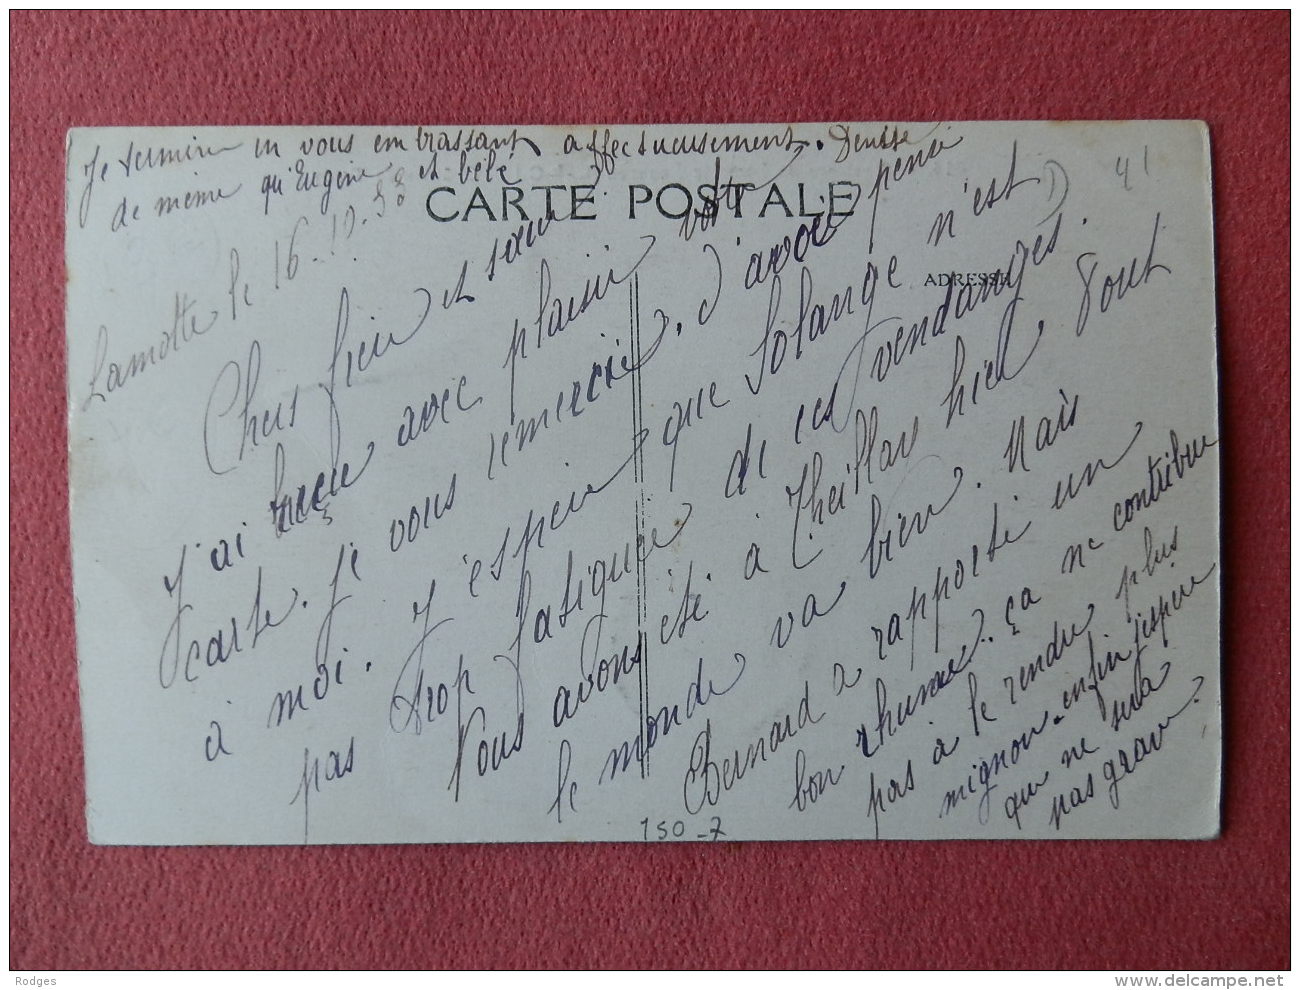 Je termine en vous embrassant affectueusement. Denise
de même qu'Eugène et bébé
CARTE POSTALE
ADRESSE
41
Lamotte le 16-10-38
Chers frère et sœur
J'ai reçu avec plaisir votre
carte. Je vous remercie. d'avoir pensé
à moi. J'espère que Solange n'est
pas trop fatiguée de ces vendanges.
Nous avons été à Theillay hier. Tout
le monde va bien. Mais
Bernard a rapporté un
bon rhume. ça ne contribue
pas à le rendre plus
mignon. enfin j'espère
que ne sera
pas grave.
150-7
Rodges
www.delcampe.net